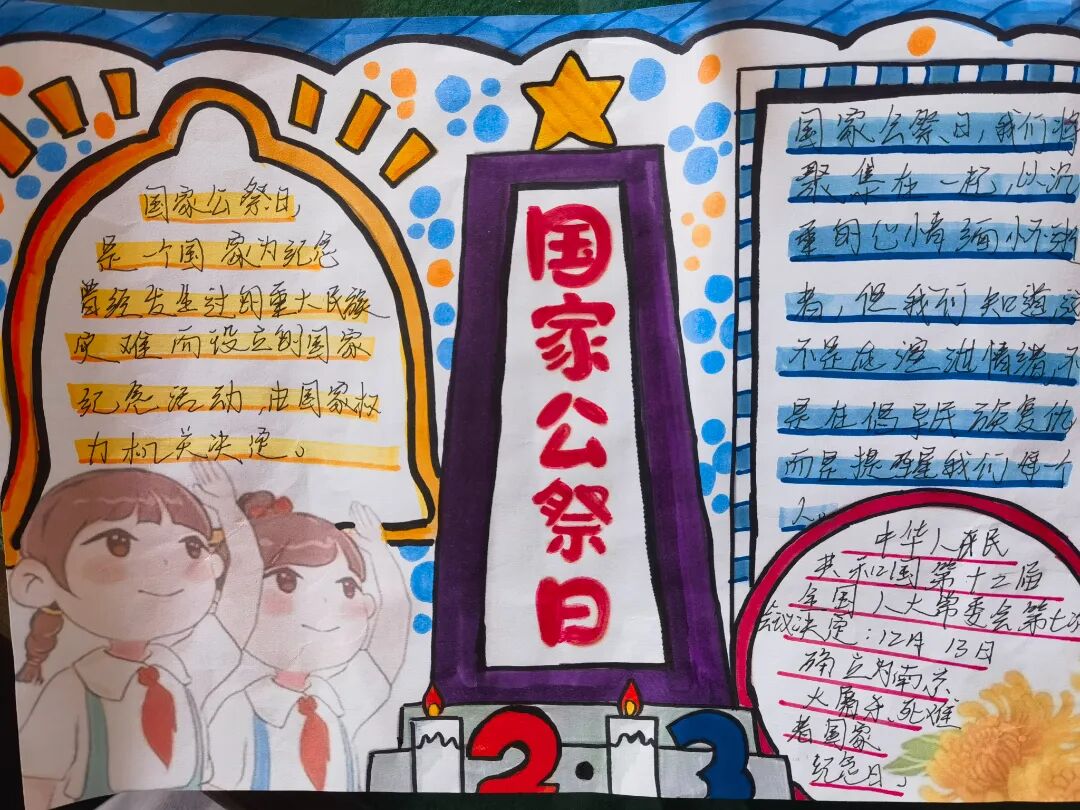 国家公祭日
是一个国家为纪念
曾经发生过的重大民族
灾难而设立的国家
纪念活动,由国家权
力机关决定。
国家公祭日
2·3
国家公祭日,我们将
聚集在一起,以沉
重的心情缅怀
者,但我们知道
不是在渲泄情绪,不
是在倡导民族复仇
而是提醒我们每一个
人。
中华人民
共和国第十二届
全国人大常委会第七次
会议决定:12月13日
确立为南京
大屠杀死难
者国家
纪念日。